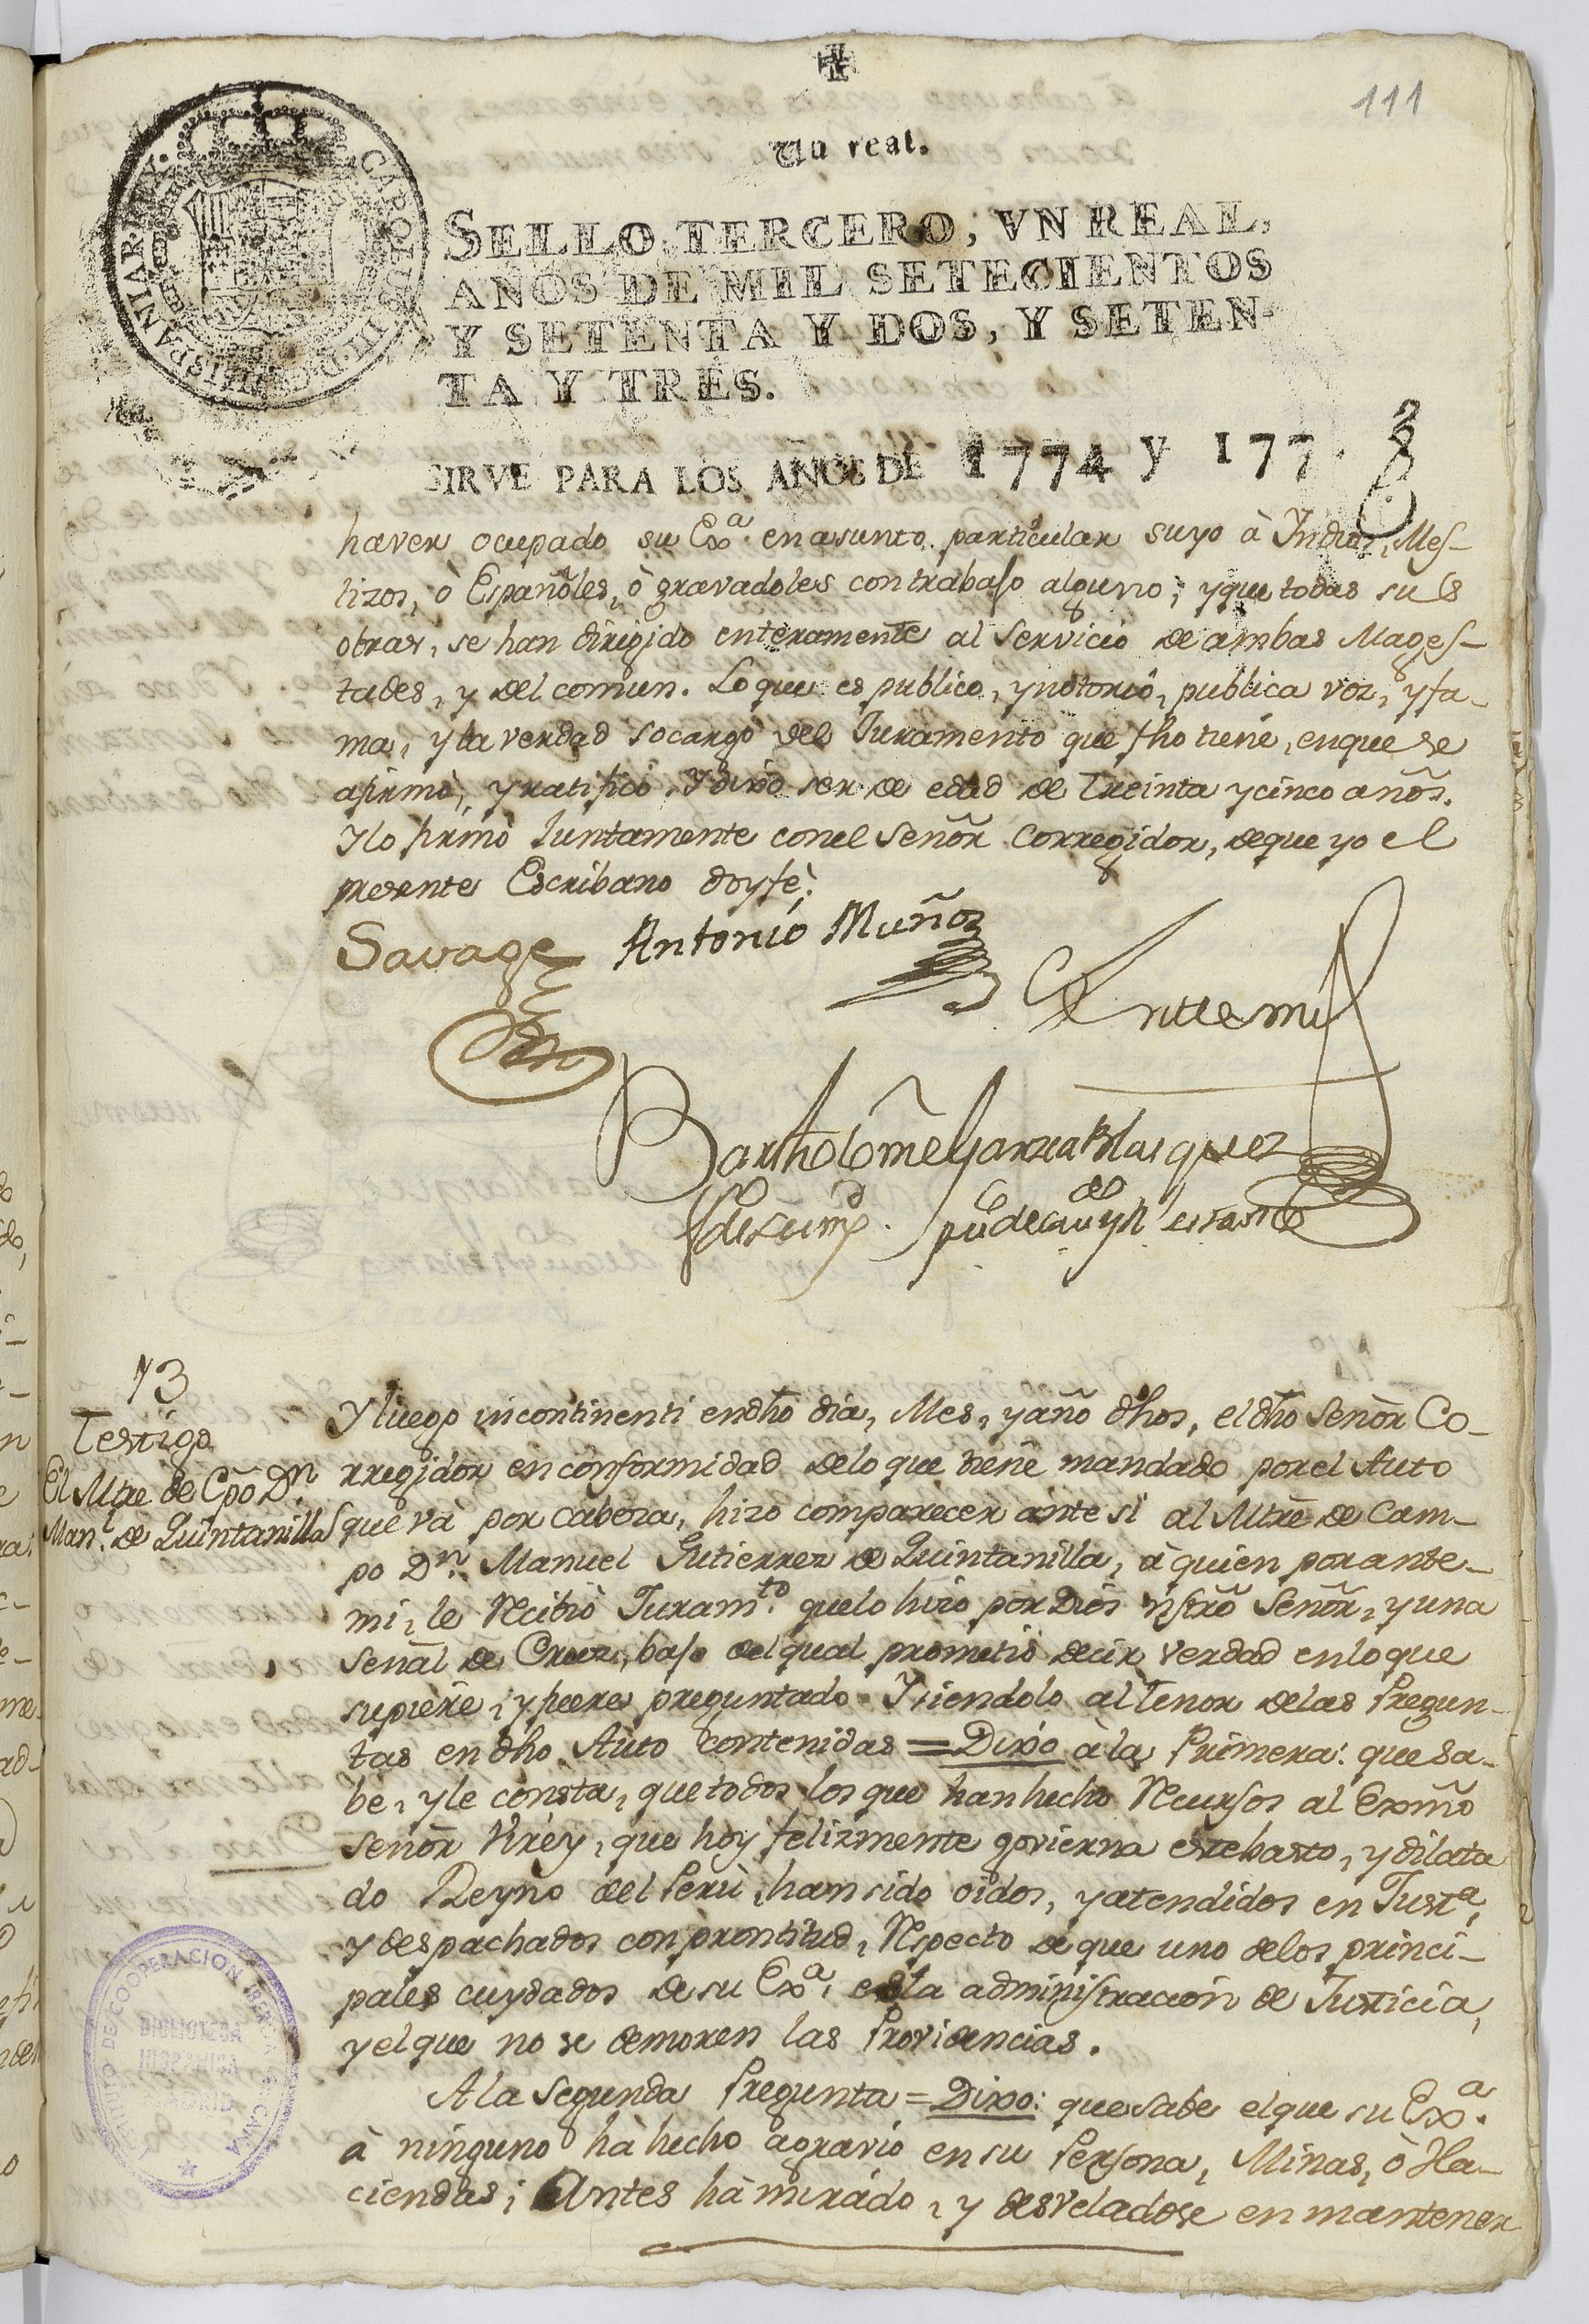 111
Un real.
SELLO TERCERO, VN REAL,
AÑOS DE MIL SETECIENTOS
Y SETENTA Y DOS, Y SETEN-
TA Y TRES.
SIRVE PARA LOS AÑOS DE 1774 y 177
haver ocupado su Exa. en asunto particular suyo à Indios, Mes-
tizos, ò Españoles, ò gravadoles con trabajo alguno; y que todas sus
obras, se han dirigido enteramente al servicio de ambas Mages-
tades, y del comun. Lo que es publico, y notorio, publica voz, y fa-
ma, y la verdad socargo del Juramento que fho tiene, en que se
afirmò, y ratificò. Y dixo ser de edad de treinta y cinco años.
Y lo firmò Juntamente con el Señor Corregidor, de que yo el
presente Escribano doy fè.
Savage Antonio Muñoz
Ante mi
Bartholome Garzia Blasquez
Y luego incontinenti en dho dia, Mes, y año dhos, el dho Señor Co-
rregidor en conformidad de lo que tiene mandado por el Auto
que và por cabeza, hizo comparecer ante si al Mtre de Cam-
po Dn. Manuel Gutierrez de Quintanilla, à quien por ante-
mi, le Recibiò Juramto. que lo hizo por Dios nstro Señor, y una
señal de Cruz, bajo del qual prometiò decir verdad en lo que
supiere, y fuere preguntado. Y siendolo al tenor de las Pregun-
tas en dho Auto contenidas = Dixo à la Primera: que sa-
be, y le consta, que todos los que han hecho Recursos al Exmo
Señor Virey, que hoy felizmente govierna este basto, y dilata
do Reyno del Perù, han sido oidos, y atendidos en Justa,
y despachados con prontitud, Respecto de que uno de los princi-
pales cuydados de su Exa, es la administracion de Justicia,
y el que no se demoren las Providencias.
A la segunda Pregunta = Dixo: que sabe el que su Exa.
à ninguno hà hecho agravio en su Persona, Minas, ò Ha-
ciendas; Antes hà mirado, y desveladose en mantener
73
Testigo
El Mtre de Cpo Dn
Manl. de Quintanilla
INSTITUTO DE COOPERACION IBEROAMERICANA
BIBLIOTECA
HISPANICA
MADRID